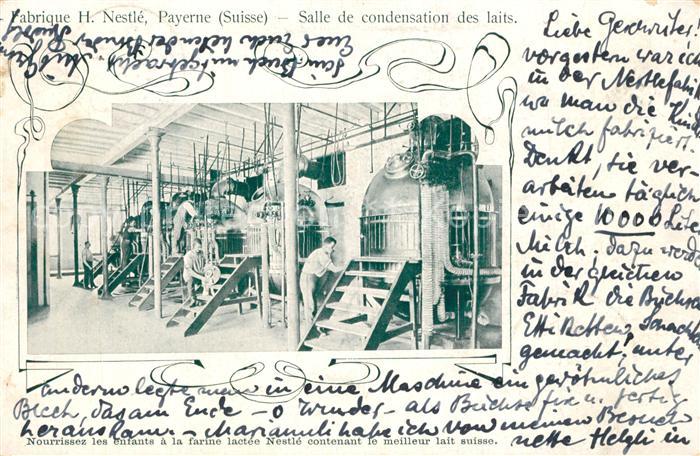 Fabrique H. Nestlé, Payerne (Suisse) — Salle de condensation des laits.
Liebe Geschwister!
vorgestern war ich
in der Nestlefabrik
wo man die Kinder
milch fabriziert.
Denkt, sie ver-
arbeiten täglich
einige 10000 Liter
Milch; dazu werden
in der gleichen
Fabrik die Büchsen
Etiketten, Schachteln
gemacht, unter
anderm legte man in eine Maschine ein gewöhnliches
Blech, das am Ende - o Wunder - als Büchse fix u. fertig
herauskam. - Mariannli habe ich von meinem Besuch
nette Helgli in
Nourrissez les enfants à la farine lactée Nestlé contenant le meilleur lait suisse.
sein Buch mitgebracht.
Euer Euch liebender Bruder